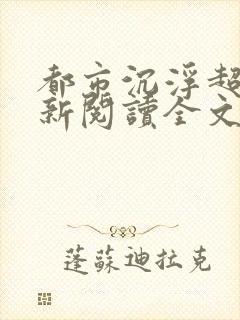 都市沉浮超
新閱讀全文
蓬蘇迪拉克